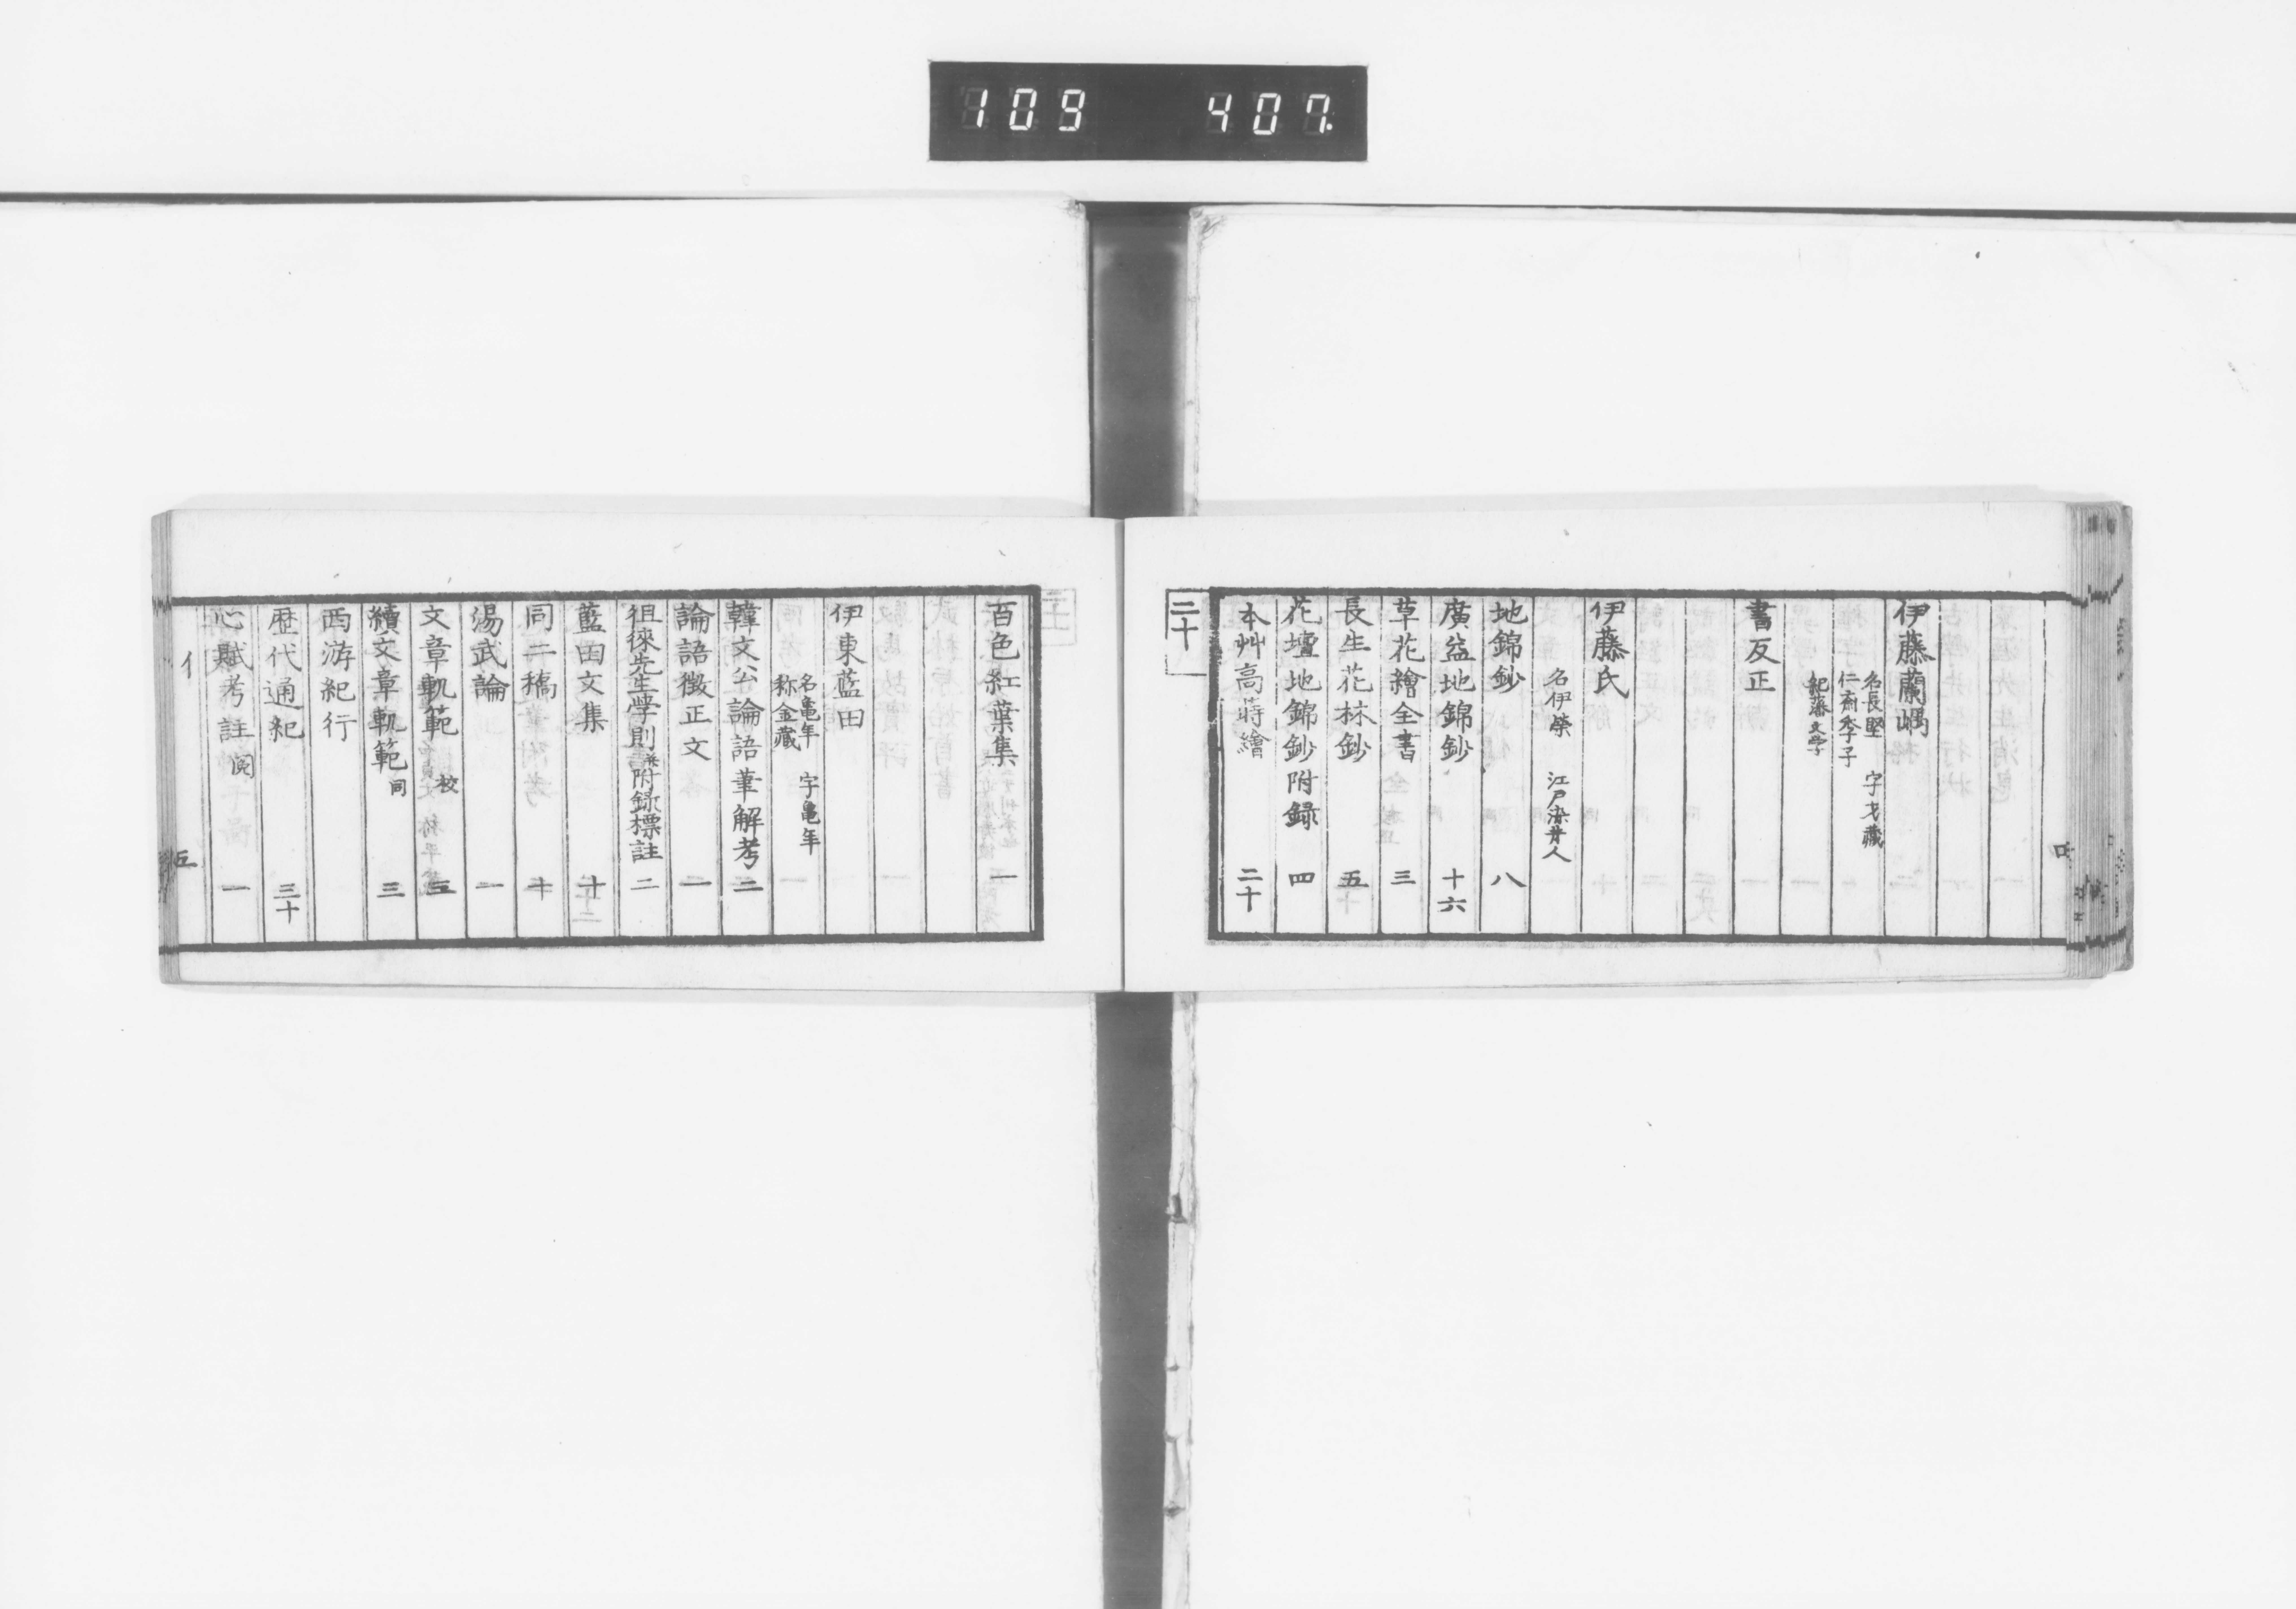 109 407
伊藤蘭嵎
名長堅 字才藏
仁齋季子
紀藩文學
書反正
伊藤氏
名伊榮 江戸染井人
地錦鈔 八
廣益地錦鈔 十六
草花繪全書 三
長生花林鈔 五
花壇地錦鈔附録 四
本艸高蒔繪 二十
二十
百色紅葉集 一
伊東藍田
名亀年 字亀年
称金藏
韓文公論語筆解考 二
論語徴正文 一
徂徠先生学則并附録標註 二
藍田文集 十
同二稿 十
湯武論 一
文章軌範 校 三
續文章軌範 同 三
西游紀行
歴代通紀 三十
心賦考註 閲 一
イ 五